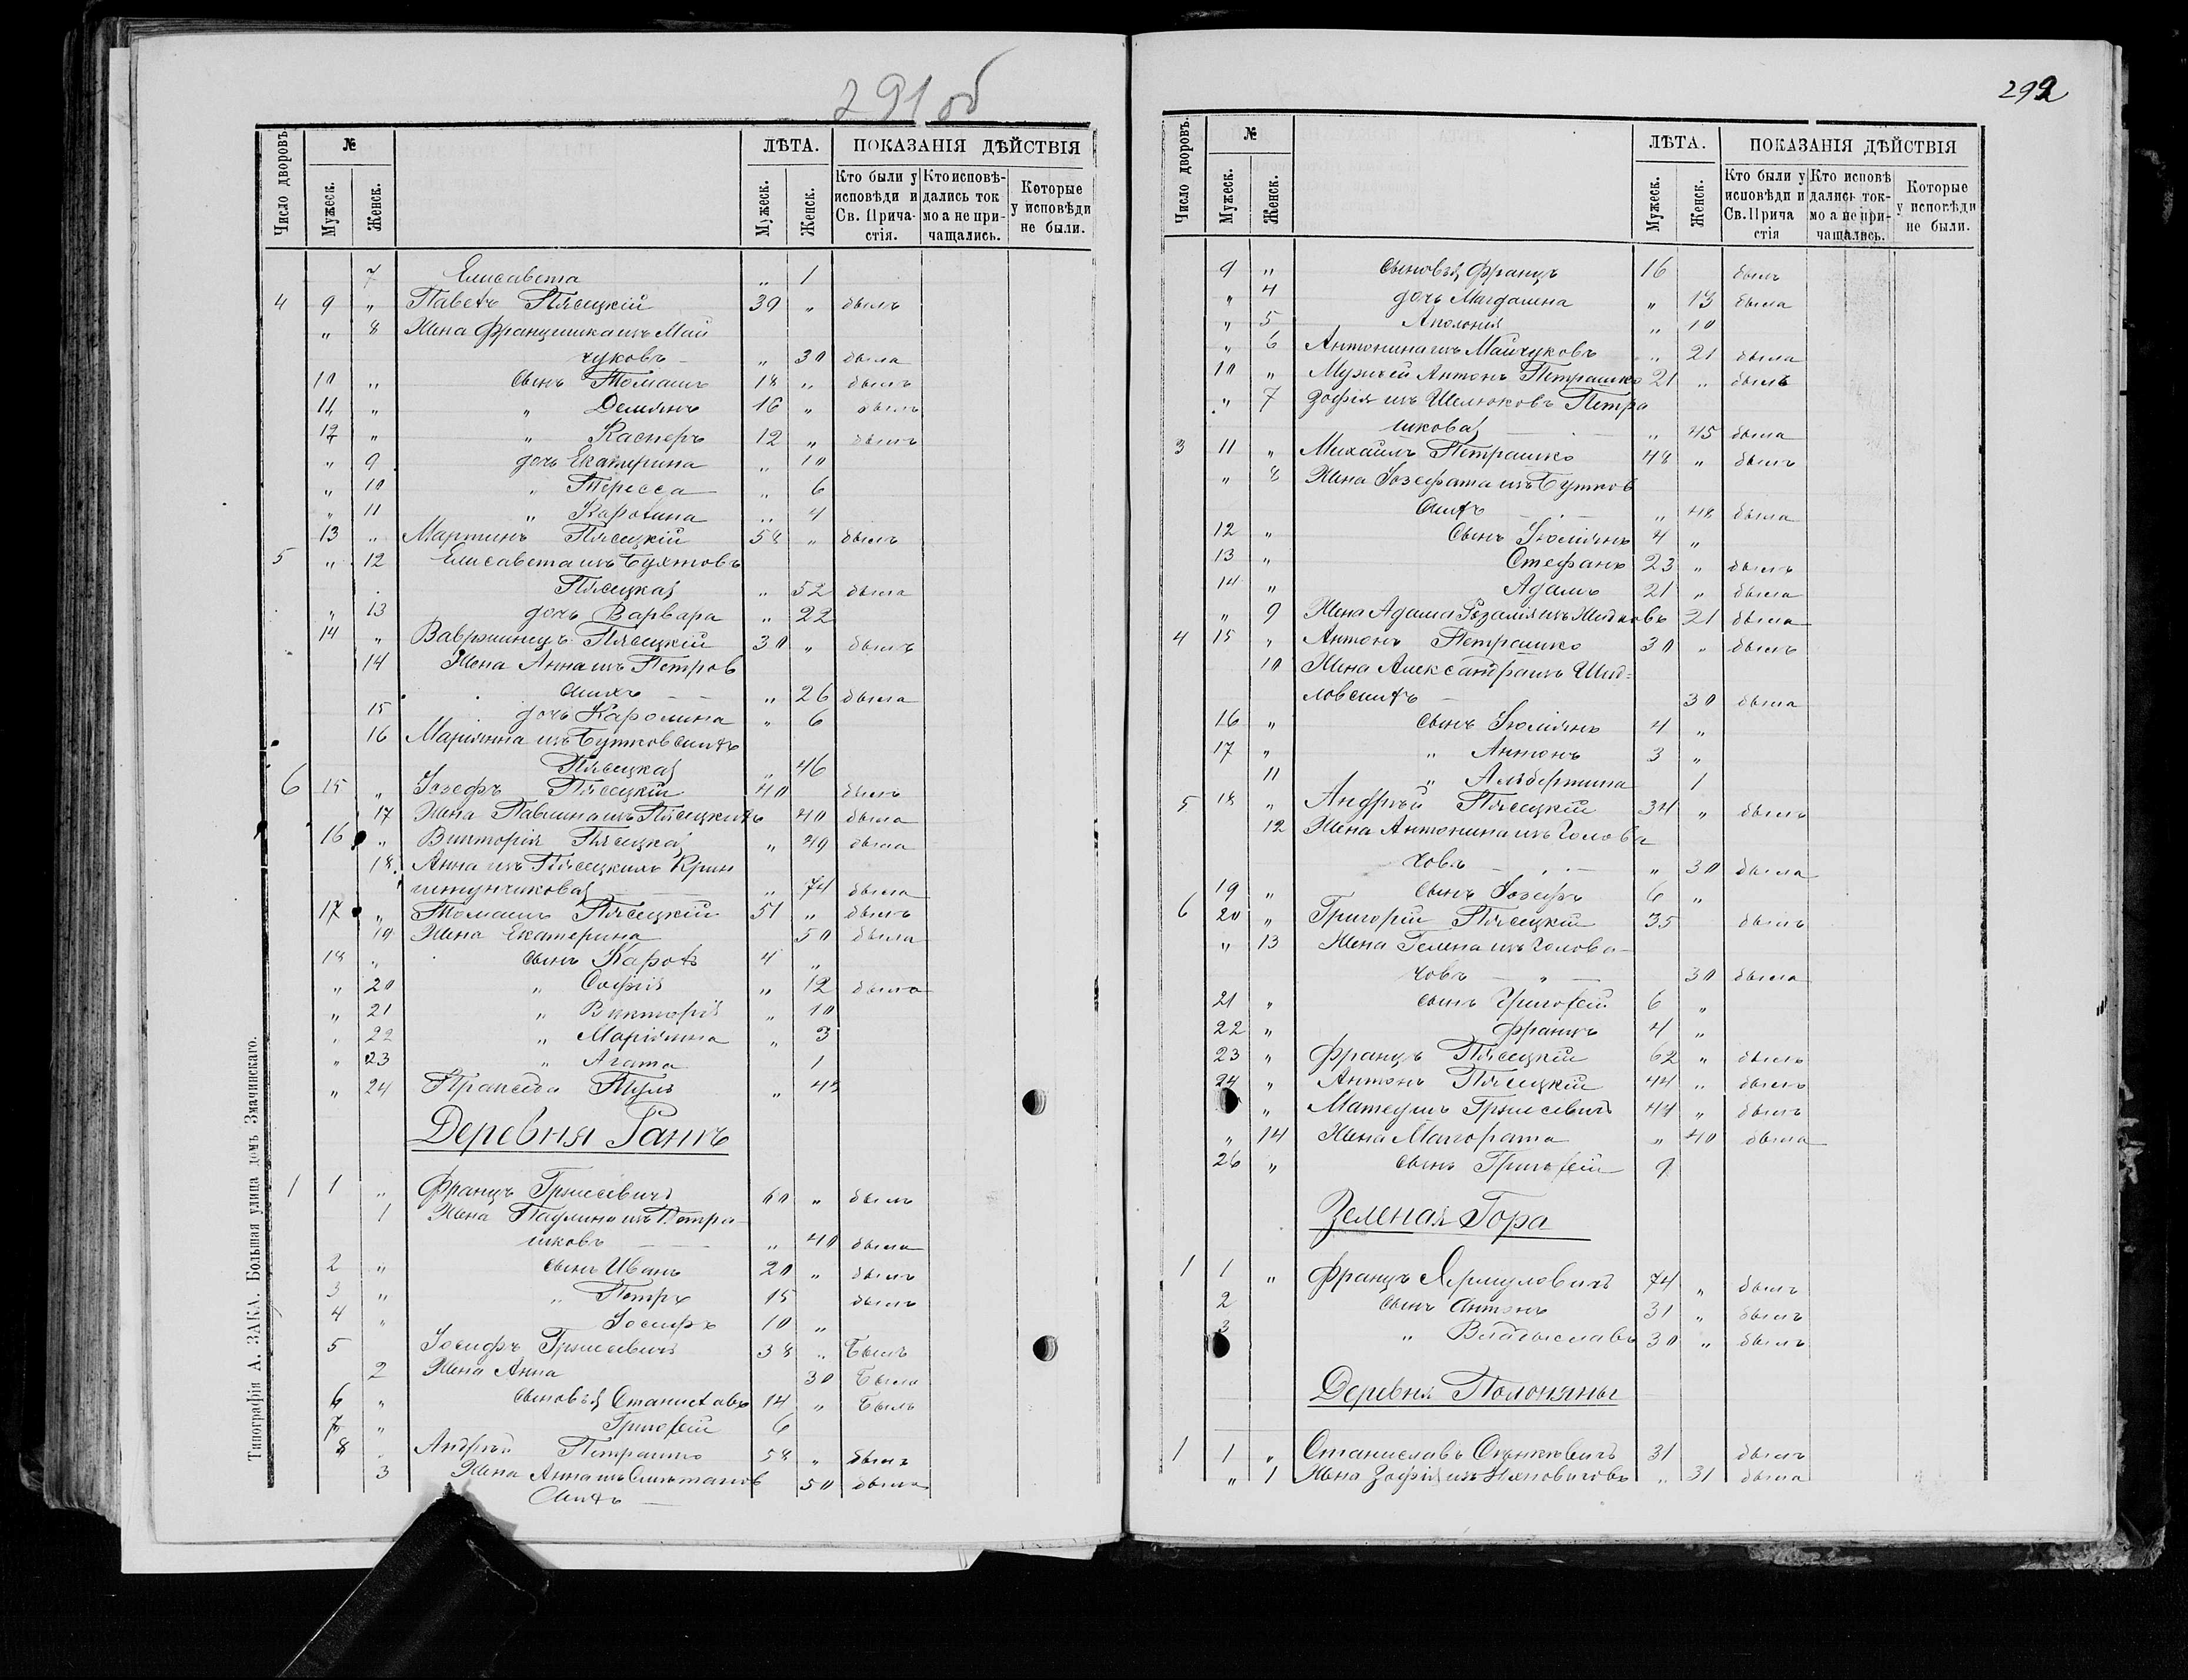 291 об
Число дворовъ. № ЛѢТА. ПОКАЗАНІЯ ДѢЙСТВІЯ
Мужеск. Женск. Мужеск. Женск. Кто были у исповѣди и Св. Прича-стія. Кто исповѣ-дались ток мо а не при-чащались. Которые у исповѣди не были.
7 Елисавета " 1
4 9 " Павелъ Плясецкій 39 " былъ
" 8 Жена Францишка изъ Май
чуковъ — " 30 была
10 " сынъ Томашъ 18 " былъ
11 " " Демянъ 16 " былъ
12 " " Касперъ 12 " былъ
" 9 дочь Екатерина " 10
" 10 " Тересса " 6
" 11 " Каролина " 4
13 " Мартинъ Плясецкій 58 " былъ
5 " 12 Елисавета изъ Бухтовъ
Плясецкая " 52 была
" 13 дочь Варвара " 22
14 " Вавржинецъ Плясецкій 30 " былъ
14 Жена Анна изъ Петров
скихъ — " 26 была
15 дочь Каролина " 6
16 Маріянна изъ Бутковскихъ
Плясецкая " 46
6 15 " Іозефъ Плясецкій 40 былъ
17 Жена Павлина изъ Плясецкихъ 40 была
16 " Викторія Плясецкая " 49 была
18 Анна изъ Плясецкихъ Криш
тунчикова " 74 была
17 " Томашъ Плясецкій 51 " былъ
19 Жена Екатерина 50 была
18 " сынъ Кароль 4 "
" 20 " Софія " 12 была
" 21 " Викторія " 10
" 22 " Маріянна " 3
" 23 " Агата 1
" 24 Праксeда " 42
Деревня Ганъ
1 1 " Францъ Грысевичъ 60 " былъ
1 Жена Паулина изъ Петра
шковъ — " 40 была
2 " сынъ Иванъ 20 " былъ
3 " " Петръ 15 былъ
4 " Іосифъ 10 "
5 Іосифъ Грысевичъ 38 " Былъ
2 Жена Анна 30 Была
6 " сыновья Станиславъ 14 " Былъ
7 " Григорій 6
8 Андрей Петрашко 58 " былъ
3 Жена Анна изъ Сметанов 50 была
скихъ —
Типографія А. ЗАКА. Большая улица домъ Змачинскаго.
292
Число дворовъ. № ЛѢТА. ПОКАЗАНІЯ ДѢЙСТВІЯ
Мужеск. Женск. Мужеск. Женск. Кто были у исповѣди и Св. Прича стія Кто исповѣ дались ток-мо а не при-чащались. Которые у исповѣди не были.
9 " сыновья Францъ 16 былъ
" 4 дочь Магдалена " 13 была
" 5 Аполонія " 10
" 6 Антонина изъ Майчуковъ " 21 была
10 " Муж ей Антонъ Петрашко 21 " былъ
" 7 Зофія изъ Шелюковъ Петра
шкова — " 45 была
3 11 " Михаилъ Петрашко 48 " былъ
" 8 Жена Іозефата изъ Бутков
скихъ — " 48 была
12 " сынъ Юліянъ 4 "
13 " Стефанъ 23 " былъ
14 " Адамъ 21 " была
" 9 Жена Адама Розалія изъ 21 была
4 15 " Антонъ Петрашко 30 " былъ
10 Жена Александра изъ Шид-
ловскихъ — 30 была
16 " сынъ Юліянъ 4 "
17 " " Антонъ 3 "
11 " Альбертина 1
5 18 " Андрей Плясецкій 34 " былъ
12 Жена Антонина изъ Голова
човъ — " 30 была
19 " сынъ Іозефъ 6 "
6 20 " Григорій Плясецкій 35 былъ
" 13 Жена Гелена изъ Голова-
човъ — " — 30 была
21 " сынъ Григорій 6 "
22 " Францъ 4 "
23 " Францъ Плясецкій 62 " былъ
24 " Антонъ Плясецкій 44 " былъ
" Матеушъ Грысевичъ 44 " былъ
" 14 Жена Малгората " 40 была
26 " сынъ Григорій 9
Зеленая Гора
1 1 " Францъ Ярмуловичъ 74 " былъ
2 сынъ Антонъ 31 " былъ
3 " Владыславъ 30 " былъ
Деревня Полоняны
1 1 " Станиславъ 31 былъ
" 1 Жена Зофія изъ " 31 была